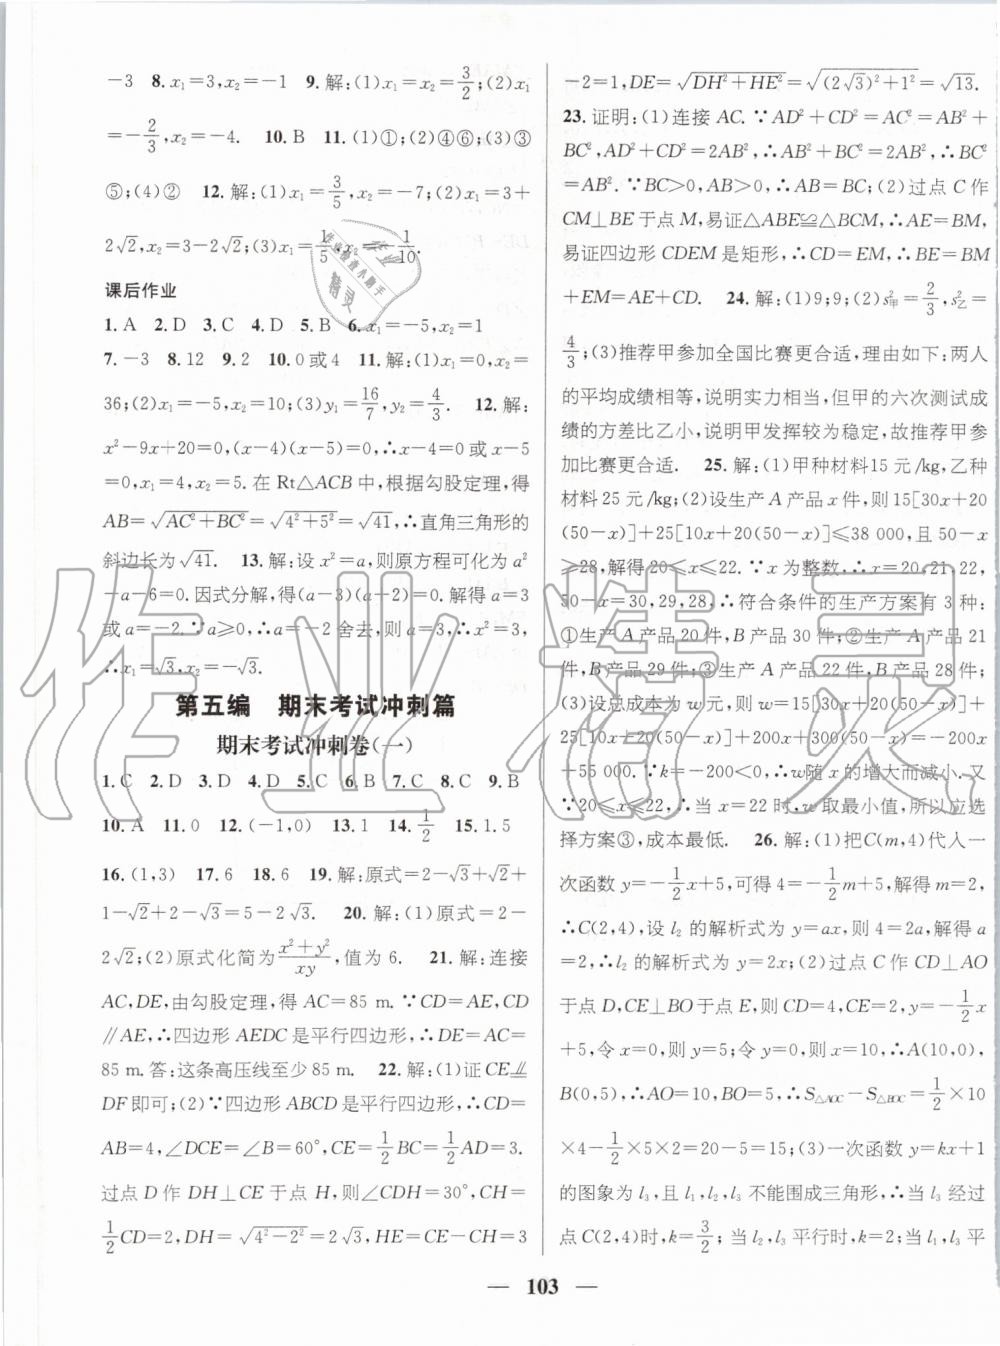 －3　8. x₁＝3，x₂＝－1　9. 解：(1)x₁＝x₂＝3/2；(2)x₁
＝－2/3，x₂＝－4.　10. B　11. (1)①；(2)④⑥；(3)③
⑤；(4)②　12. 解：(1)x₁＝3/5，x₂＝－7；(2)x₁＝3＋
2√2，x₂＝3－2√2；(3)x₁＝1/5，x₂＝－1/10.
课后作业
1. A　2. D　3. C　4. D　5. B　6. x₁＝－5，x₂＝1
7. －3　8. 12　9. 2　10. 0或4　11. 解：(1)x₁＝0，x₂＝
36；(2)x₁＝－5，x₂＝10；(3)y₁＝16/7，y₂＝4/3.　12. 解：
x²－9x＋20＝0，(x－4)(x－5)＝0，∴x－4＝0或x－5
＝0，x₁＝4，x₂＝5. 在 Rt△ACB 中，根据勾股定理，得
AB＝√(AC²＋BC²)＝√(4²＋5²)＝√41，∴直角三角形的
斜边长为√41.　13. 解：设 x²＝a，则原方程可化为 a²
－a－6＝0. 因式分解，得(a－3)(a＋2)＝0. 解得 a＝3
或 a＝－2. ∵a≥0，∴a＝－2 舍去，则 a＝3，∴x²＝3，
∴x₁＝√3，x₂＝－√3.
第五编　期末考试冲刺篇
期末考试冲刺卷(一)
1. C　2. D　3. D　4. D　5. C　6. B　7. C　8. C　9. B
10. A　11. 0　12. (－1,0)　13. 1　14. 1/2　15. 1.5
16. (1,3)　17. 6　18. 6　19. 解：原式＝2－√3＋√2＋
1－√2＋2－√3＝5－2√3.　20. 解：(1)原式＝2－
2√2；(2)原式化简为(x²＋y²)/xy，值为 6.　21. 解：连接
AC，DE，由勾股定理，得 AC＝85 m. ∵CD＝AE，CD
∥AE，∴四边形 AEDC 是平行四边形，∴DE＝AC＝
85 m. 答：这条高压线至少 85 m.　22. 解：(1)证 CE⫽
DF 即可；(2)∵四边形 ABCD 是平行四边形，∴CD＝
AB＝4，∠DCE＝∠B＝60°，CE＝1/2BC＝1/2AD＝3.
过点 D 作 DH⊥CE 于点 H，则∠CDH＝30°，CH＝
1/2CD＝2，DH＝√(4²－2²)＝2√3，HE＝CE－CH＝3
－2＝1，DE＝√(DH²＋HE²)＝√((2√3)²＋1²)＝√13.
23. 证明：(1)连接 AC. ∵AD²＋CD²＝AC²＝AB²＋
BC²，AD²＋CD²＝2AB²，∴AB²＋BC²＝2AB²，∴BC²
＝AB². ∵BC＞0，AB＞0，∴AB＝BC；(2)过点 C 作
CM⊥BE 于点 M，易证△ABE≌△BCM，∴AE＝BM，
易证四边形 CDEM 是矩形，∴CD＝EM，∴BE＝BM
＋EM＝AE＋CD.　24. 解：(1)9；9；(2)s²甲＝2/3，s²乙＝
4/3；(3)推荐甲参加全国比赛更合适，理由如下：两人
的平均成绩相等，说明实力相当，但甲的六次测试成
绩的方差比乙小，说明甲发挥较为稳定，故推荐甲参
加比赛更合适.　25. 解：(1)甲种材料15 元/kg，乙种
材料 25 元/kg；(2)设生产 A 产品 x 件，则 15[30x＋20
(50－x)]＋25[10x＋20(50－x)]≤38 000，且 50－x
≥28，解得 20≤x≤22. ∵x 为整数，∴x＝20，21，22，
50－x＝30，29，28，∴符合条件的生产方案有 3 种：
①生产 A 产品 20 件，B 产品 30 件；②生产 A 产品 21
件，B 产品 29 件；③生产 A 产品 22 件，B 产品 28 件；
(3)设总成本为 w 元，则 w＝15[30x＋20(50－x)]＋
25[10x＋20(50－x)]＋200x＋300(50－x)＝－100x
＋55 000. ∵k＝－100＜0，∴w 随 x 的增大而减小. 又
∵20≤x≤22，∴当 x＝22 时，w 取最小值，所以应选
择方案③，成本最低.　26. 解：(1)把C(m,4)代入一
次函数 y＝－1/2x＋5，可得 4＝－1/2m＋5，解得 m＝2，
∴C(2,4)，设 l₂ 的解析式为 y＝ax，则 4＝2a，解得 a
＝2，∴l₂ 的解析式为 y＝2x；(2)过点 C 作 CD⊥AO
于点 D，CE⊥BO 于点 E，则 CD＝4，CE＝2，y＝－1/2x
＋5，令 x＝0，则 y＝5，令 y＝0，则 x＝10，∴A(10,0)，
B(0,5)，∴AO＝10，BO＝5，∴S△AOC－S△BOC＝1/2×10
×4－1/2×5×2＝20－5＝15；(3)一次函数 y＝kx＋1
的图象为 l₃，且 l₁，l₂，l₃ 不能围成三角形，∴当 l₃ 经过
点 C(2,4)时，k＝3/2；当 l₂，l₃ 平行时，k＝2；当 l₁，l₃ 平
— 103 —
作业精灵